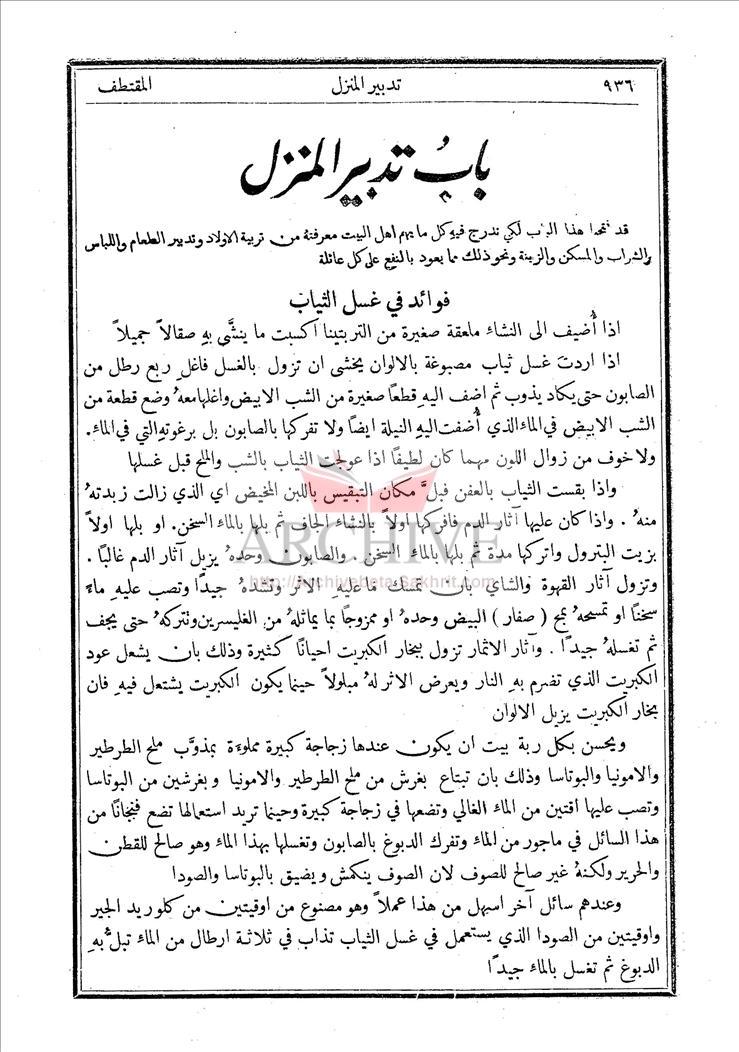 ٩٣٦ تدبير المنزل المقتطف
بابُ تدبير المنزل
قد فتحنا هذا الباب لكي ندرج فيهِ كل ما يهم اهل البيت معرفتهُ من تربية الاولاد وتدبير الطعام واللباس
والشراب والمسكن والزينة ونحو ذلك مما يعود بالنفع على كل عائلة
فوائد في غسل الثياب
اذا أُضيف الى النشاء ملعقة صغيرة من التربتينا اكسبت ما ينشَّى بهِ صقالاً جميلاً
اذا اردتَ غسل ثياب مصبوغة بالالوان يخشى ان تزول بالغسل فاغلِ ربع رطل من
الصابون حتى يكاد يذوب ثم اضف اليهِ قطعًا صغيرة من الشب الابيض واغلها معهُ وضع قطعة من
الشب الابيض في الماء الذي أُضفت اليهِ النيلة ايضًا ولا تفركها بالصابون بل برغوتهِ التي في الماء.
ولا خوف من زوال اللون مهما كان لطيفًا اذا عولجت الثياب بالشب والملح قبل غسلها
واذا بقست الثياب بالعفن فبلَّ مكان التبقيس باللبن المخيض اي الذي زالت زبدتهُ
منهُ. واذا كان عليها آثار الدم فافركها اولاً بالنشاء الجاف ثم بلها بالماء السخن. او بلها اولاً
بزيت البترول واتركها مدة ثم بلها بالماء السخن. والصابون وحدهُ يزيل آثار الدم غالبًا.
ARCHIVE
http://Archivebeta.Sakhrit.com
وتزول آثار القهوة والشاي بان تمسك ما عليهِ الاثر وتشدهُ جيدًا وتصب عليهِ ماءً
سخنًا او تمسحهُ بمح (صفار) البيض وحدهُ او ممزوجًا بما يماثلهُ من الغليسرين وتتركهُ حتى يجف
ثم تغسلهُ جيدًا. وآثار الاثمار تزول ببخار الكبريت احيانًا كثيرة وذلك بان يشعل عود
الكبريت الذي تضرم بهِ النار ويعرض الاثر لهُ مبلولاً حينما يكون الكبريت يشتعل فيهِ فان
بخار الكبريت يزيل الالوان
ويحسن بكل ربة بيت ان يكون عندها زجاجة كبيرة مملوءة بمذوَّب ملح الطرطير
والامونيا والبوتاسا وذلك بان تبتاع بغرش من ملح الطرطير والامونيا وبغرشين من البوتاسا
وتصب عليها اقتين من الماء الغالي وتضعها في زجاجة كبيرة وحينما تريد استعمالها تضع فنجانًا من
هذا السائل في ماجور من الماء وتفرك الدبوغ بالصابون وتغسلها بهذا الماء وهو صالح للقطن
والحرير ولكنهُ غير صالح للصوف لان الصوف ينكمش ويضيق بالبوتاسا والصودا
وعندهم سائل آخر اسهل من هذا عملاً وهو مصنوع من اوقيتين من كلوريد الجير
واوقيتين من الصودا الذي يستعمل في غسل الثياب تذاب في ثلاثة ارطال من الماء تبلُّ بهِ
الدبوغ ثم تغسل بالماء جيدًا